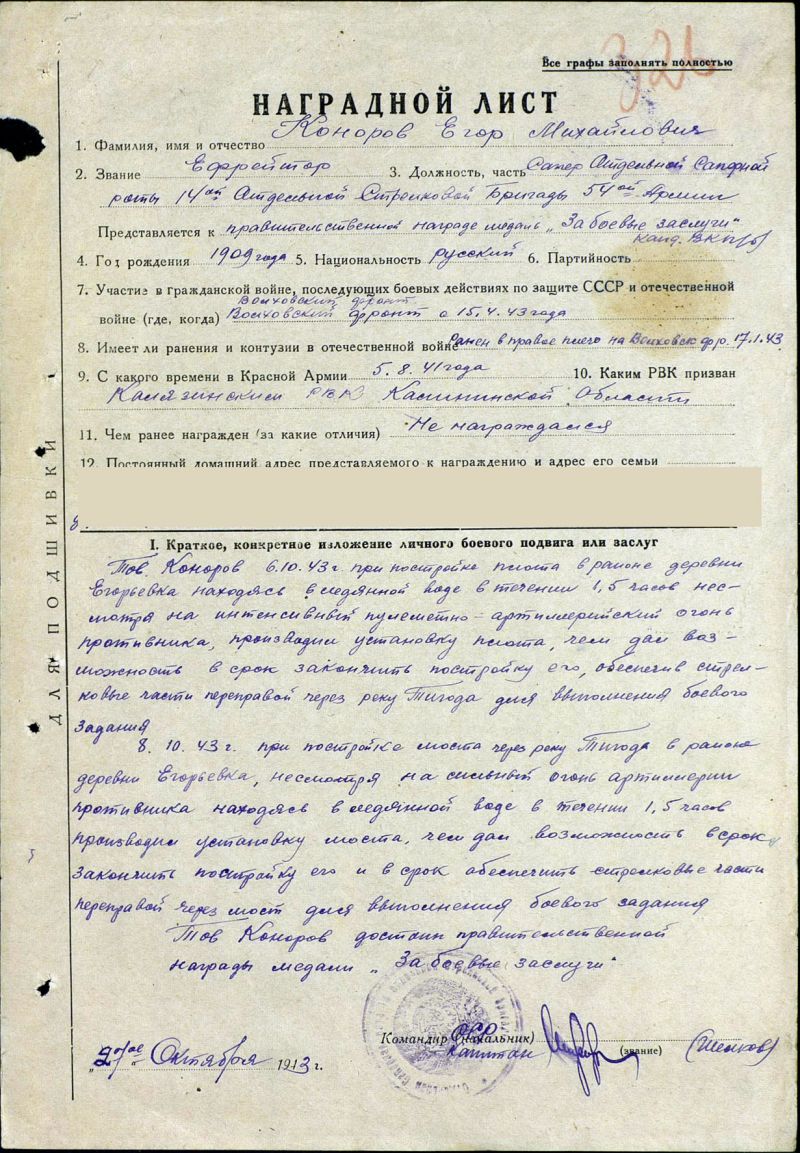 Все графы заполнять полностью
НАГРАДНОЙ ЛИСТ
1. Фамилия, имя и отчество Коноров Егор Михайлович
2. Звание Ефрейтор 3. Должность, часть Сапер Отдельной Саперной
роты 14ой Отдельной Стрелковой Бригады 54ой Армии
Представляется к правительственной награде медаль „За боевые заслуги"
4. Год рождения 1909 года 5. Национальность русский 6. Партийность канд. ВКП(б)
7. Участие в гражданской войне, последующих боевых действиях по защите СССР и отечественной
Волховский фронт
войне (где, когда) Волховский фронт с 15.4.43 года
8. Имеет ли ранения и контузии в отечественной войне Ранен в правое плечо на Волховск фр. 17.1.43
9. С какого времени в Красной Армии 5.8.41 года 10. Каким РВК призван
Калязинским РВК Калининской Области
11. Чем ранее награжден (за какие отличия) Не награждался
12. Постоянный домашний адрес представляемого к награждению и адрес его семьи
I. Краткое, конкретное изложение личного боевого подвига или заслуг
Тов. Коноров 6.10.43 г. при постройке плота в районе деревни
Егорьевка находясь в ледянной воде в течении 1,5 часов нес-
мотря на интенсивный пулеметно-артиллерийский огонь
противника, производил установку плота, чем дал воз-
можность в срок закончить постройку его, обеспечив стрел-
ковые части переправой через реку Тигода для выполнения боевого
задания
8.10.43 г. при постройке моста через реку Тигода в районе
деревни Егорьевка, несмотря на сильный огонь артиллерии
противника находясь в ледянной воде в течении 1,5 часов
производил установку моста, чем дал возможность в срок
закончить постройку его и в срок обеспечить стрелковые части
переправой через мост для выполнения боевого задания
Тов Коноров достоин правительственной
награды медали „За боевые заслуги"
Командир (начальник) ОСР
капитан (звание) (Шелков)
Октября 1943 г.
ДЛЯ ПОДШИВКИ